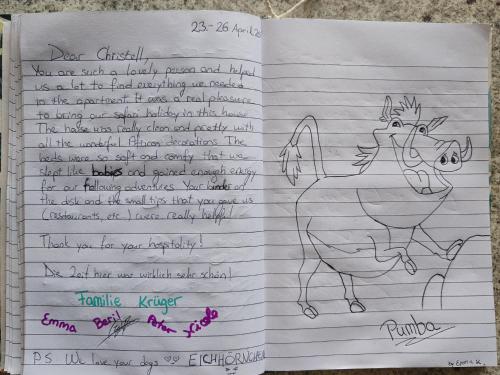 23.-26 April 20
Dear Christell,
You are such a lovely person and helped
us a lot to find everything we needed
in the apartment. It was a real pleasure
to bring our safari holiday in this house.
The house was really clean and pretty with
all the wonderful African decorations. The
beds were so soft and comfy that we
slept like babies and gained enough energy
for our following adventures. Your on
the disk and the small tips that you gave us
(restaurants, etc.) were really helpful!
Thank you for your hospitality!
Die Zeit hier war wirklich sehr schön!
Familie Krüger
Emma Beril Peter Nicole
PS We love your dogs ♡♡ EICHHÖRNCHEN
Pumba
by Emma K.